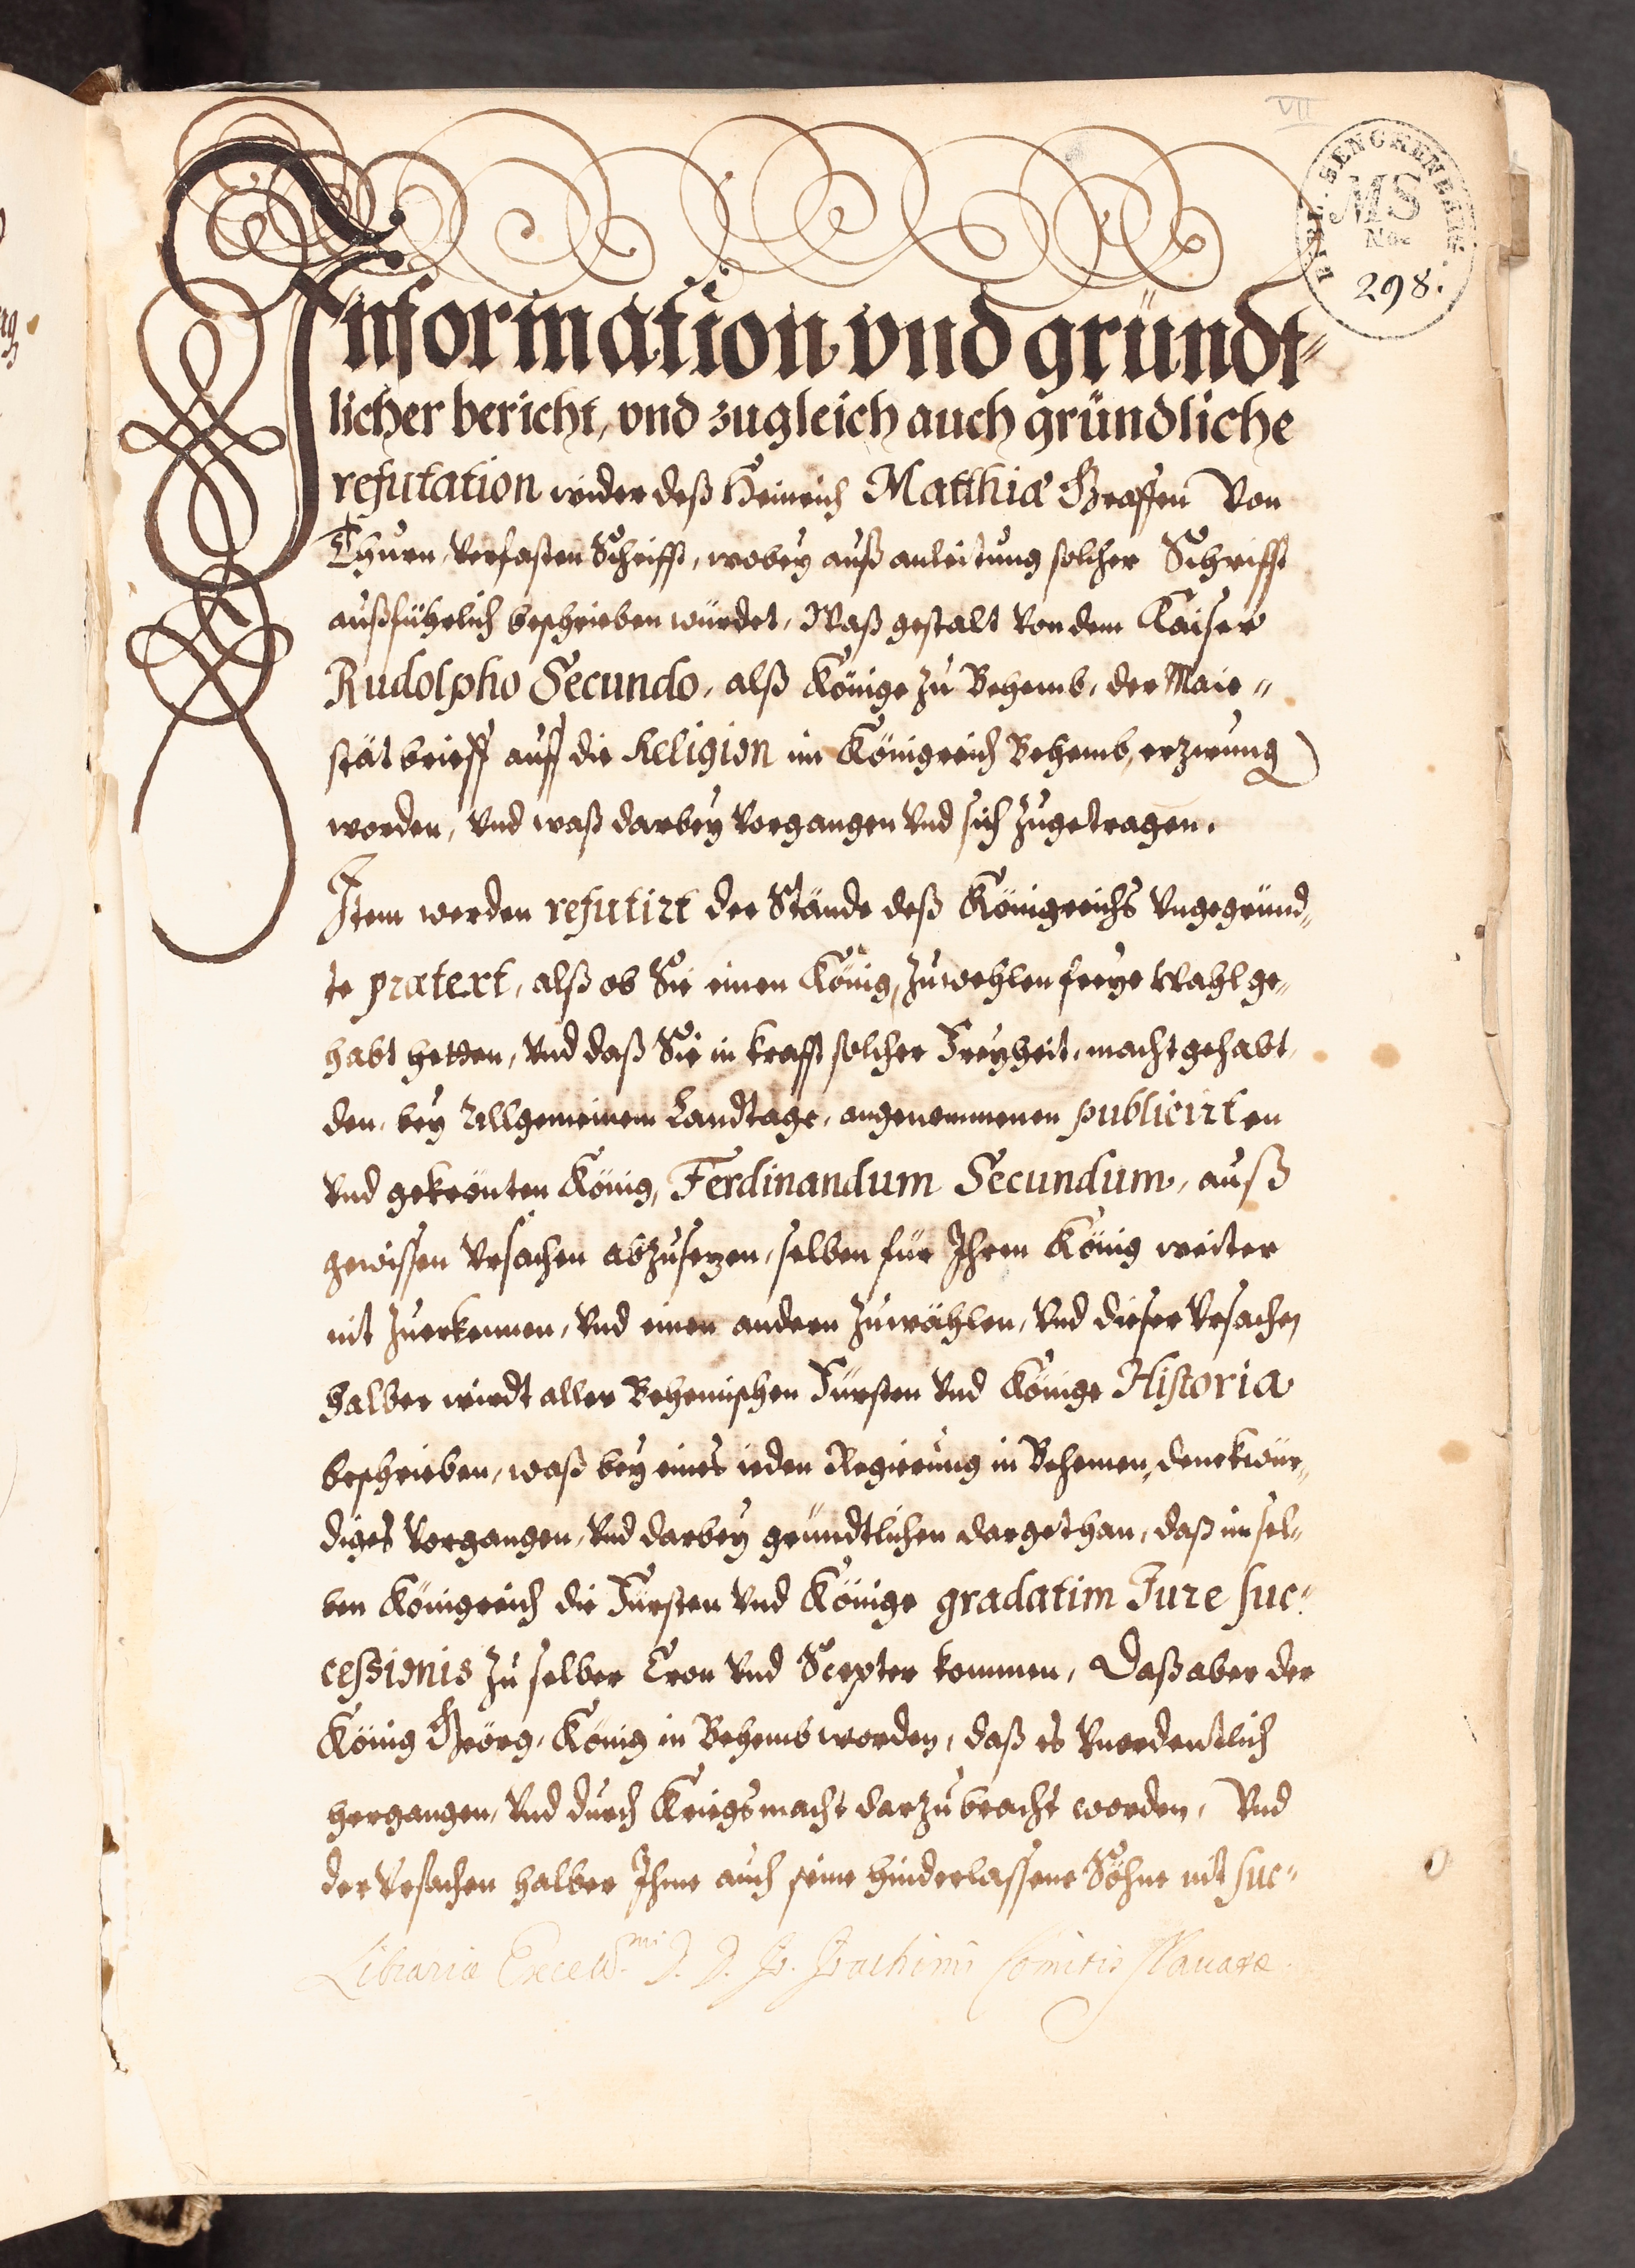 VII
BIBL. SENCKENBARG.
MS
No.
298.
Information vnd gründt-
licher bericht, vnd zugleich auch gründliche
refutation wider deß Heinrich Matthiæ Graffen Von
Thurn, Verfasten Schrifft, wobey auß anleitung solcher Schrifft
außführlich beschrieben würdet, Waß gestalt Von dem Kaiser
Rudolpho Secundo, alß Könige zu Behemb, der Maie-
stät brieff auff die Religion im Königreich Behemb, erzwung
worden, Vnd waß darbey Vorgangen Vnd sich zugetragen.
Item werden refutirt der Stände deß Königreichs Vngegründ-
te prætext, alß ob Sie einen König, zuwehlen freye Wahl ge-
habt hetten, Vnd daß Sie in krafft solcher Freyheit, macht gehabt,
den, bey Allgemeinem Landtage, angenommenen publicirten
Vnd gekrönten König, Ferdinandum Secundum, auß
gewissen Vrsachen abzusezen, selben für Ihren König weiter
nit zuerkennen, Vnd einen andern zuwählen, Vnd dieser Vrsachen
halber wirdt aller Behemischen Fürsten Vnd Könige Historia
beschrieben, waß bey eines ieden Regierung in Behemen, denckwür-
diges Vorgangen, Vnd darbey gründtlichen dargethan, daß im sel-
ben Königreich die Fürsten Vnd Könige gradatim Jure suc-
cessionis zu selber Cron Vnd Scepter kommen, Daß aber der
König Geörg, König in Behemb worden, daß es Vnordentlich
hergangen, Vnd durch Kriegsmacht darzu bracht worden, Vnd
der Vrsachen halber Ihme auch seine hinderlassene Söhne nit suc-
Librariæ Excell.mi D. D. Jo. Joachimi Comitis Slavatæ.